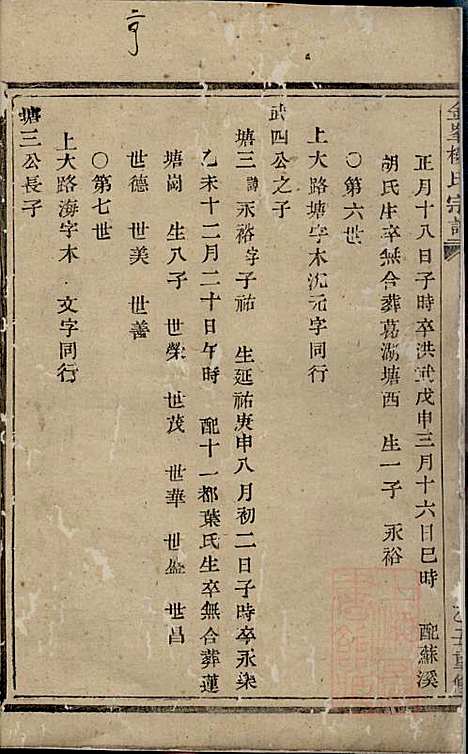 亨
金峯楊氏宗譜
正月十八日子時卒洪武戊申三月十六日巳時 配蘇溪
胡氏生卒無合葬葛湖塘西 生一子 永裕
〇第六世
上大路塘字木沉元字同行
武四公之子
塘三 諱永裕字子祐 生延祐庚申八月初二日子時卒永柒
乙未十二月二十日午時 配十一都葉氏生卒無合葬蓮
塘崗 生八子 世榮 世茂 世華 世盛 世昌
世德 世美 世善
〇第七世
上大路海字木·文字同行
塘三公長子